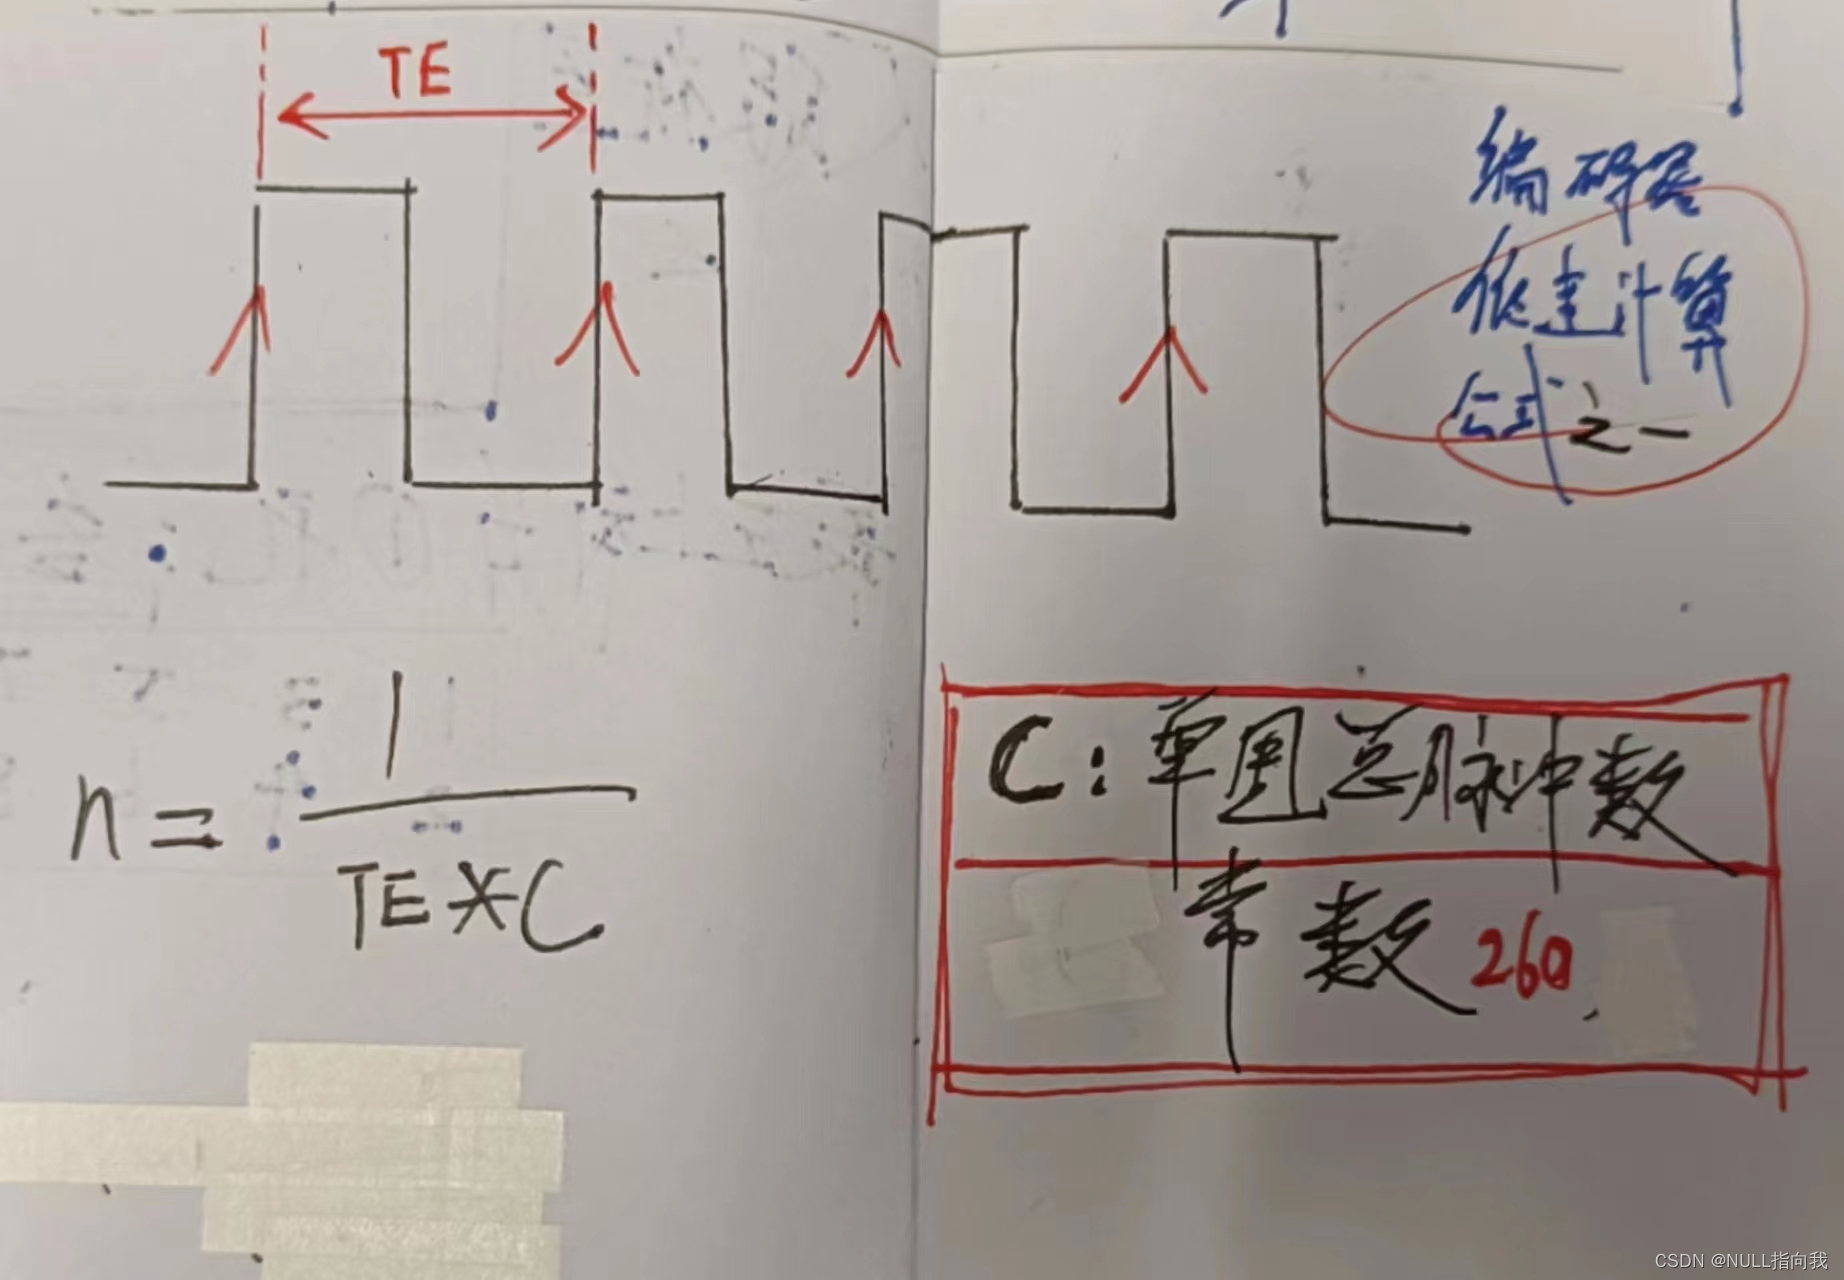 TE
编码器
低速计算
公式之一
n = 1
TE*C
C：单圈总脉冲数
常数 260
CSDN @NULL指向我